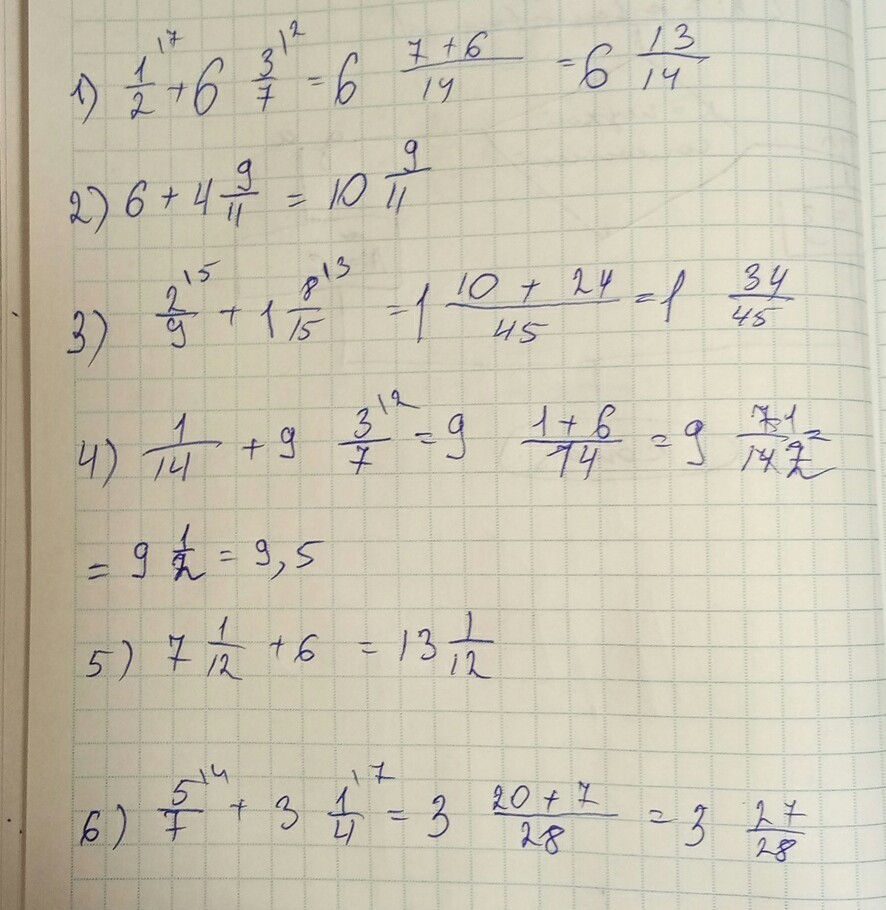 1) 1/2 \7 + 6 3/7 \2 = 6 (7+6)/14 = 6 13/14
2) 6 + 4 9/11 = 10 9/11
3) 2/9 \5 + 1 8/15 \3 = 1 (10 + 24)/45 = 1 34/45
4) 1/14 + 9 3/7 \2 = 9 (1+6)/14 = 9 7 1/14 2
= 9 1/2 = 9,5
5) 7 1/12 + 6 = 13 1/12
6) 5/7 \4 + 3 1/4 \7 = 3 (20+7)/28 = 3 27/28